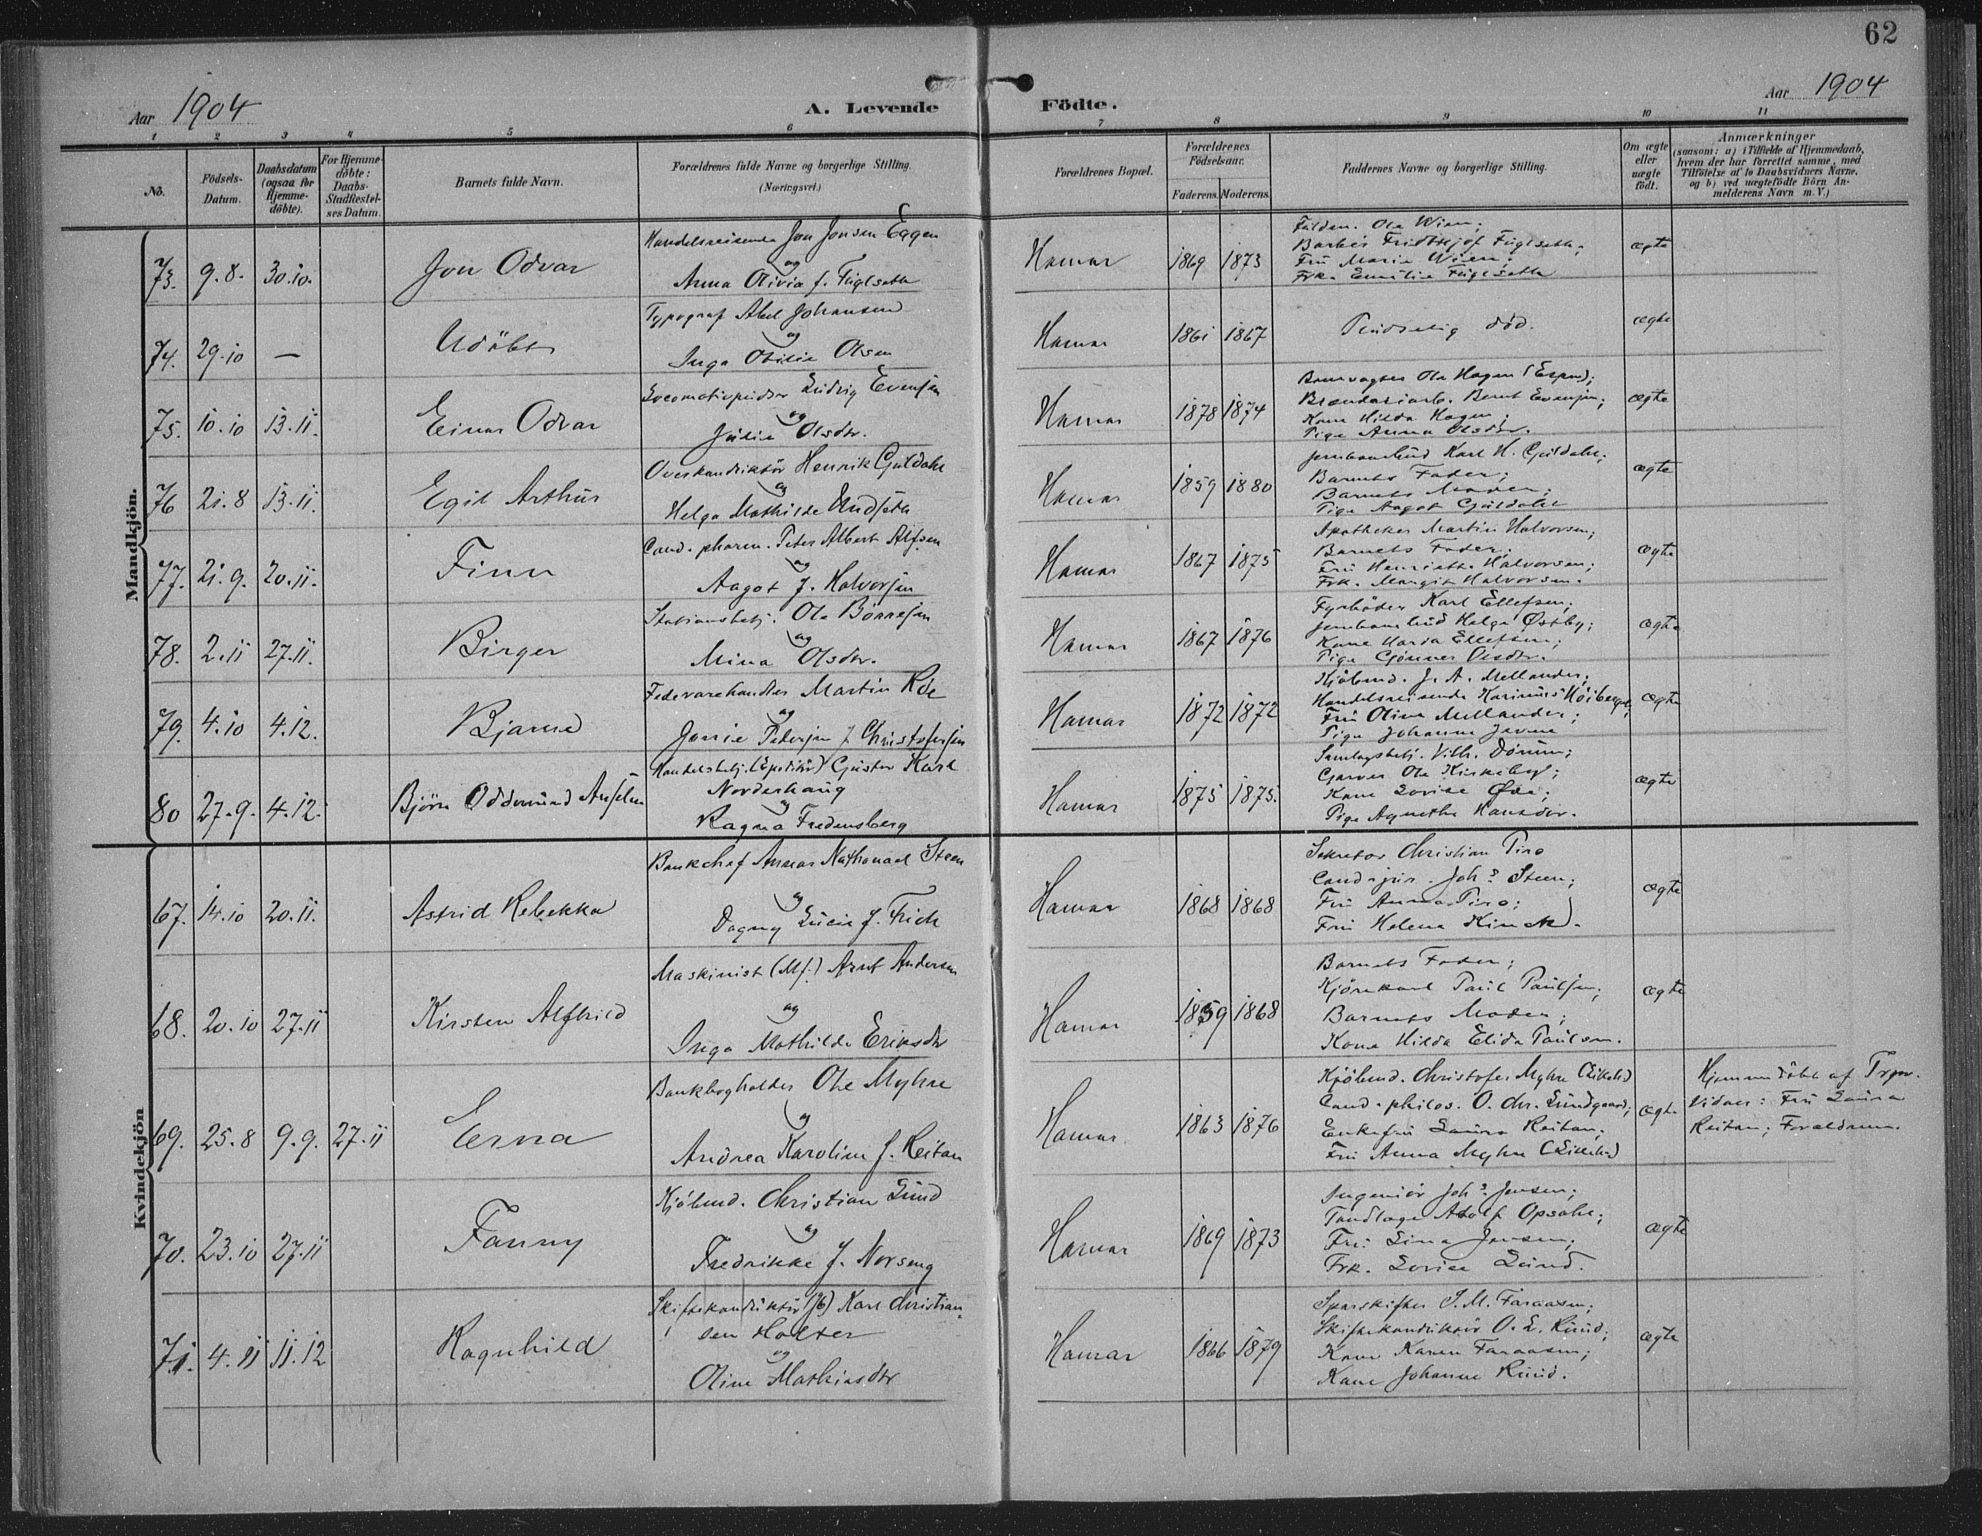 62
Aar 1904
A. Levende Födte.
Aar 1904
1 2 3 4 5 6 7 8 9 10 11
Nö.
Födsels-Datum.
Daabsdatum (ogsaa for Hjemme-döbte).
For Hjemme-döbte: Daabs-Stadfæstel-ses Datum.
Barnets fulde Navn.
Forældrenes fulde Navne og borgerlige Stilling.
(Næringsvei.)
Forældrenes Bopæl.
Forældrenes Födselsaar.
Faderens. Moderens.
Faddernes Navne og borgerlige Stilling.
Om ægte eller uægte födt.
Anmærkninger
(saasom: a) i Tilfælde af Hjemmedaab,
hvem der har forrettet samme, med
Tilföielse af to Daabsvidners Navne.
og b) ved uægtefödte Börn An-
melderens Navn m. V.)
Mandkjön.
73. 9.8. 30.10. Jon Odvar
Handelsreisende Jon Jonsen Eggen
og
Anna Olivia f. Fuglseth
Hamar 1869 1873
Ola Wien;
Barber Fridthjof Fuglseth;
Fru Marie Wien;
Frk. Emilie Fuglseth
ægte
74. 29.10 — Udöbt
Typograf Abel Johansen
og
Inga Otilie Olsen
Hamar 1861 1867
død.
ægte
75. 10.10 13.11. Einar Odvar
Locomotivpudser Ludvig Evensen
og
Julie Olsdr.
Hamar 1878 1874
Banevogter Ole Hagen (Espa);
Brænderiarb. Bernt Evensen;
Kone Hilda Hagen;
Pige Anna Olsdr.
ægte
76 21.8 13.11. Egil Arthur
Overkonduktör Henrik Guldahl
og
Helga Mathilde Undseth
Hamar 1859 1880
Jernbanebud Karl H. Guldahl;
Barnets Fader;
Barnets Moder;
Pige Aagot Guldahl
ægte
77. 21.9. 20.11. Finn
Cand. pharm. Peter Albert Alfsen
og
Aagot f. Halvorsen
Hamar 1867 1875
Apotheker Martin Halvorsen;
Barnets Fader;
Fru Henriette Halvorsen;
Frk. Margit Halvorsen.
ægte
78. 2.11 27.11. Birger
Stationsbetj. Ole Børresen
og
Mina Olsdr.
Hamar 1867 1876
Fyrböder Karl Ellefsen;
Jernbanebud Helge Østby;
Kone Marda Ellefsen;
Pige Gjönner Olsdr.
ægte
79. 4.10 4.12. Bjarne
Fedevarehandler Martin Röe
og
Jonie Pedersen f. Christofersen
Hamar 1872 1872
Kjöbmd. J. A. Mellander;
Handelsreisende Karinius Höiberget;
Fru Olina Mellander;
Pige Johanne Jevne
ægte
80 27.9. 4.12. Bjørn Oddmund Anselm
Handelsbetj. (Expeditör) Gustav Karl
Norderhaug
og
Ragna Fredensberg
Hamar 1875 1875.
Samlagsbetj. Vilh. Dörum;
Garver Ole Kirkeby;
Kone Lovise Øde;
Pige Agnethe Hansdr.
ægte
Kvindekjön
67. 14.10 20.11. Astrid Rebekka
Bankchef Anders Nathanael Steen
og
Dagny Lucie f. Frich
Hamar 1868 1868
Sekretær Christian Piro
Cand. jur. Johs Steen;
Fru Anna Piro;
Fru Helena Kinck.
ægte
68. 20.10 27.11 Kirsten Alfhild
Maskinist (Mf.) Arnt Andersen
og
Inga Mathilde Eriksdr
Hamar 1859 1868
Barnets Fader;
Kjörekarl Paul Paulsen;
Barnets Moder;
Kone Hilda Elida Paulsen.
ægte
69. 25.8 9.9. 27.11 Erna
Bankbogholder Ole Myhre
og
Andrea Karoline f. Reitan
Hamar. 1863 1876
Kjöbmd. Christofer Myhre
Cand. philos. O. Chr. Lundgaard;
Enkefru Laura Reitan;
Fru Anna Myhre
ægte
Hjemmedöbt af
Vidner: Fru Laura
Reitan; Forældrene.
70. 23.10 27.11 Fanny
Kjöbmd. Christian Lund
og
Fredrikke f. Norseng
Hamar 1869 1873
Ingeniör Johs Jensen;
Tandlæge Adolf Opsahl;
Fru Lina Jensen;
Frk. Lovise Lund.
ægte
71. 4.11 11.12 Ragnhild
Skiftekonduktör (Jb) Karl Christian-
sen Holter
og
Oline Mathiasdr
Hamar 1866 1879
Sporskifter I. M. Faraasen;
Skiftekonduktör O. L. Ruud;
Kone Karen Faraasen;
Kone Johanne Ruud.
ægte